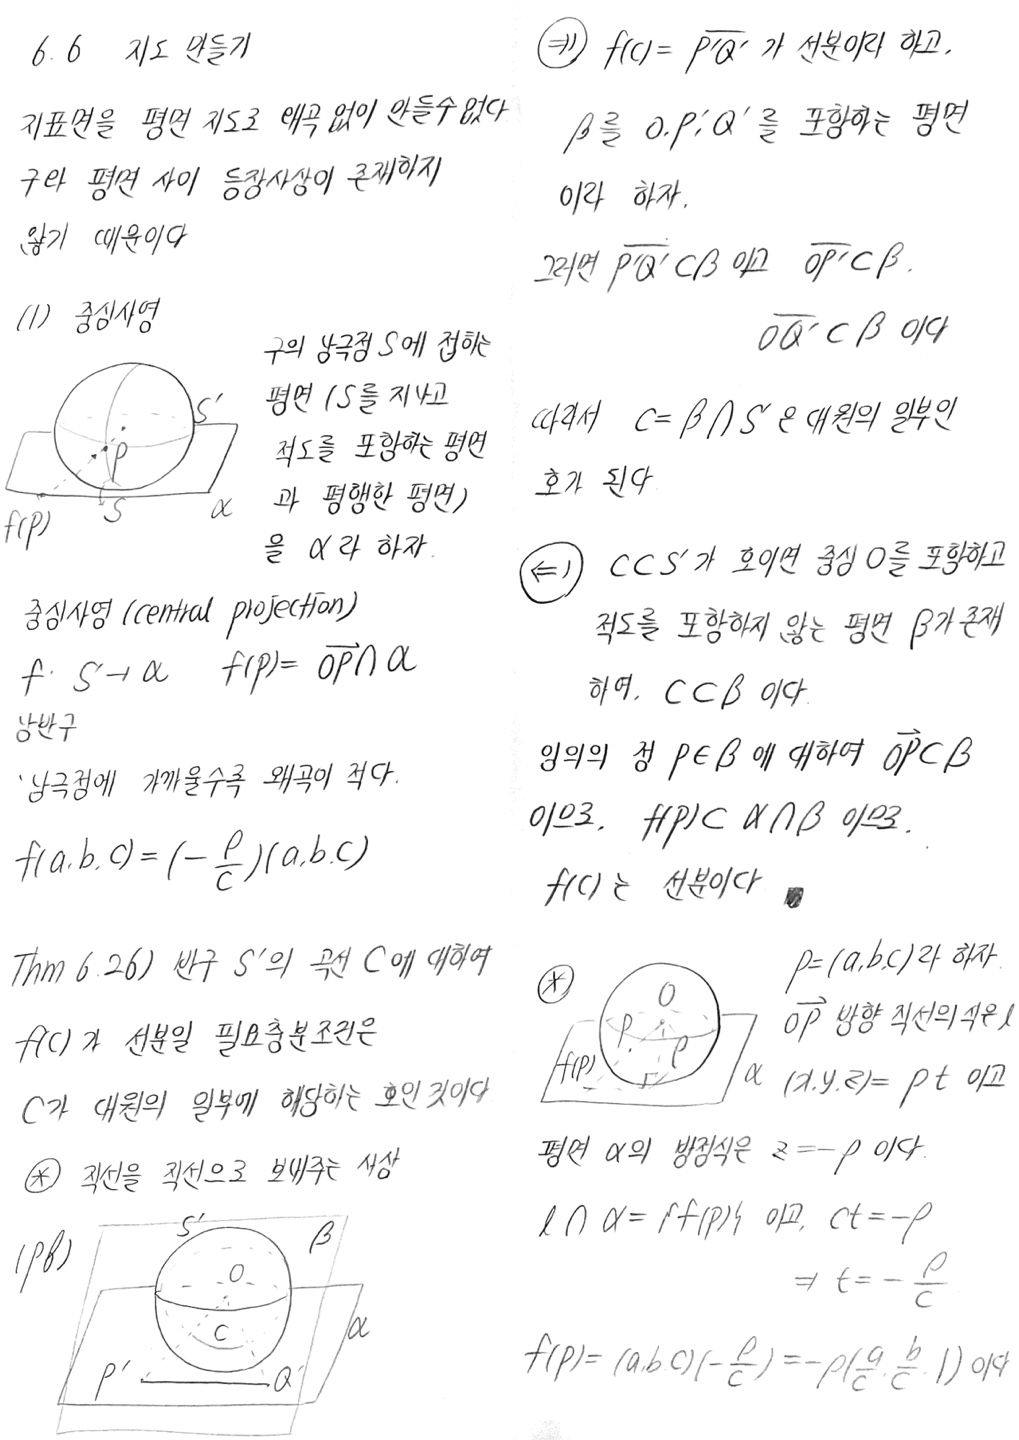 6.6 지도 만들기
지표면을 평면 지도로 왜곡 없이 만들수 없다
구와 평면 사이 등장사상이 존재하지
않기 때문이다
(1) 중심사영
구의 남극점 S에 접하는
평면 (S를 지나고
적도를 포함하는 평면
과 평행한 평면)
을 α라 하자.
S'
P
f(p)
S
α
중심사영 (central projection)
f: S' → α f(p) = OP ∩ α
남반구
남극점에 가까울수록 왜곡이 적다.
f(a.b.c) = (-ρ/c)(a.b.c)
Thm 6.26) 반구 S'의 곡선 C에 대하여
f(C)가 선분일 필요충분조건은
C가 대원의 일부에 해당하는 호인 것이다
⊛ 직선을 직선으로 보내주는 사상
(pf)
S'
β
O
C
α
P'
Q'
⇒) f(C) = P'Q' 가 선분이라 하고.
β를 O.P'.Q'를 포함하는 평면
이라 하자.
그러면 P'Q' ⊂ β 이고 OP' ⊂ β.
OQ' ⊂ β 이다
따라서 C = β ∩ S' 은 대원의 일부인
호가 된다
⇐) C ⊂ S'가 호이면 중심 O를 포함하고
적도를 포함하지 않는 평면 β가 존재
하여. C ⊂ β 이다.
임의의 점 P ∈ β 에 대하여 OP ⊂ β
이므로. f(p) ⊂ α ∩ β 이므로.
f(C)는 선분이다
⊛
O
P
ρ
f(p)
α
P = (a.b.c)라 하자.
OP 방향 직선의 식은 l
(x.y.z) = Pt 이고
평면 α의 방정식은 z = -ρ 이다.
l ∩ α = {f(p)} 이고, ct = -ρ
⇒ t = -ρ/c
f(p) = (a.b.c)(-ρ/c) = -ρ(a/c. b/c. 1) 이다